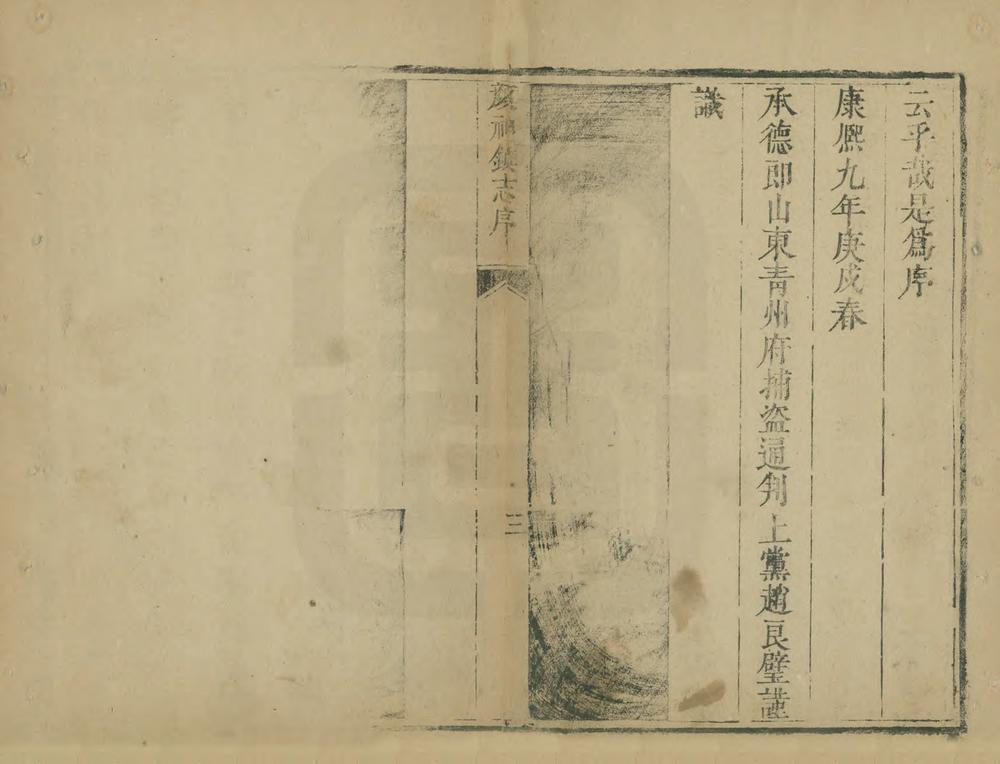 云乎哉是爲序
康熈九年庚戌春
承德郎山東青州府捕盗通判上黨趙良璧謹
識
顏神鎮志序
三